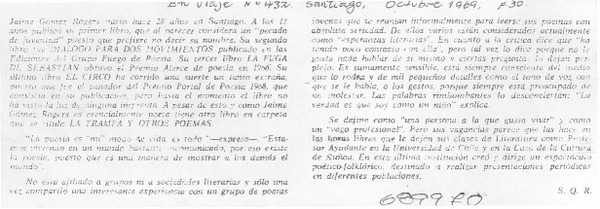 En Viaje Nº 432 Santiago, Octubre 1969, p30.
Jaime Gómez Rogers nació hace 28 años en Santiago. A los 18
años publicó su primer libro, que al parecer considera un "pecado
de juventud" puesto que prefiere no decir su nombre. Su segundo
libro fue DIALOGO PARA DOS MOVIMIENTOS publicado en las
Ediciones del Grupo Fuego de Poesía. Su tercer libro LA FUGA
DE SEBASTIAN obtuvo el Premio Alerce de poesía en 1966. Su
último libro EL CIRCO ha corrido una suerte un tanto extraña,
puesto que fue el ganador del Premio Portal de Poesía 1968, que
consistía en su publicación, pero hasta el momento el libro no
ha visto la luz de ninguna imprenta. A pesar de esto y como Jaime
Gómez Rogers es esencialmente poeta tiene otro libro en carpeta
que se titula LA TRAMPA Y OTROS POEMAS.
"La poesía es "mi" modo de vida, es todo" —expresa— "Esta-
mos viviendo en un mundo bastante incomunicado, por eso existe
la poesía, puesto que es una manera de mostrar a los demás el
mundo".
No está afiliado a grupos ni a sociedades literarias y sólo una
vez compartió una interesante experiencia con un grupo de poetas
jóvenes que se reunían informalmente para leerse sus poemas con
absoluta seriedad. De ellos varios están considerados actualmente
como "esperanzas literarias". En cuanto a la crítica dice que "ha
tenido poco contacto con ella", pero tal vez lo dice porque no le
gusta nada hablar de sí mismo y estricta pregunta. lo dejan per-
plejo. Es sumamente sensible, está siempre consciente del medio
que lo rodea y de mil pequeños detalles como el tono de voz con
que se le habla, o los gestos, porque siempre está preocupado de
no molestar. Las palabras rimbombantes lo desconciertan: "La
verdad es que soy como un niño" explica.
Se define como "una persona a la que gusta vivir" y como
un "vago profesional". Pero sus vagancias parece que las hace en
las horas libres que le dejan sus clases de Literatura como Profe-
sor Ayudante en la Universidad de Chile y en la Casa de la Cultura
de Ñuñoa. En esta última institución creó y dirige un espectáculo
poético-folklórico, destinado a realizar presentaciones periódicas
en diferentes poblaciones.
S. Q. R.
689970